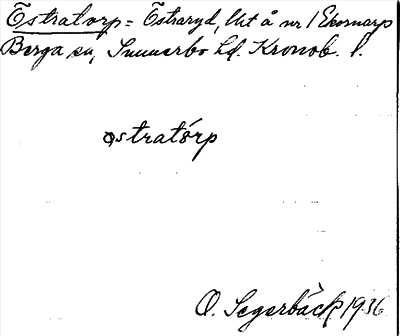 Estratorp = Estraryd, Ut å nr 1 Ekornarp
Berga sn, Sunnerbo hd. Kronob. l.
østratórp
O. Segerbäck 1936